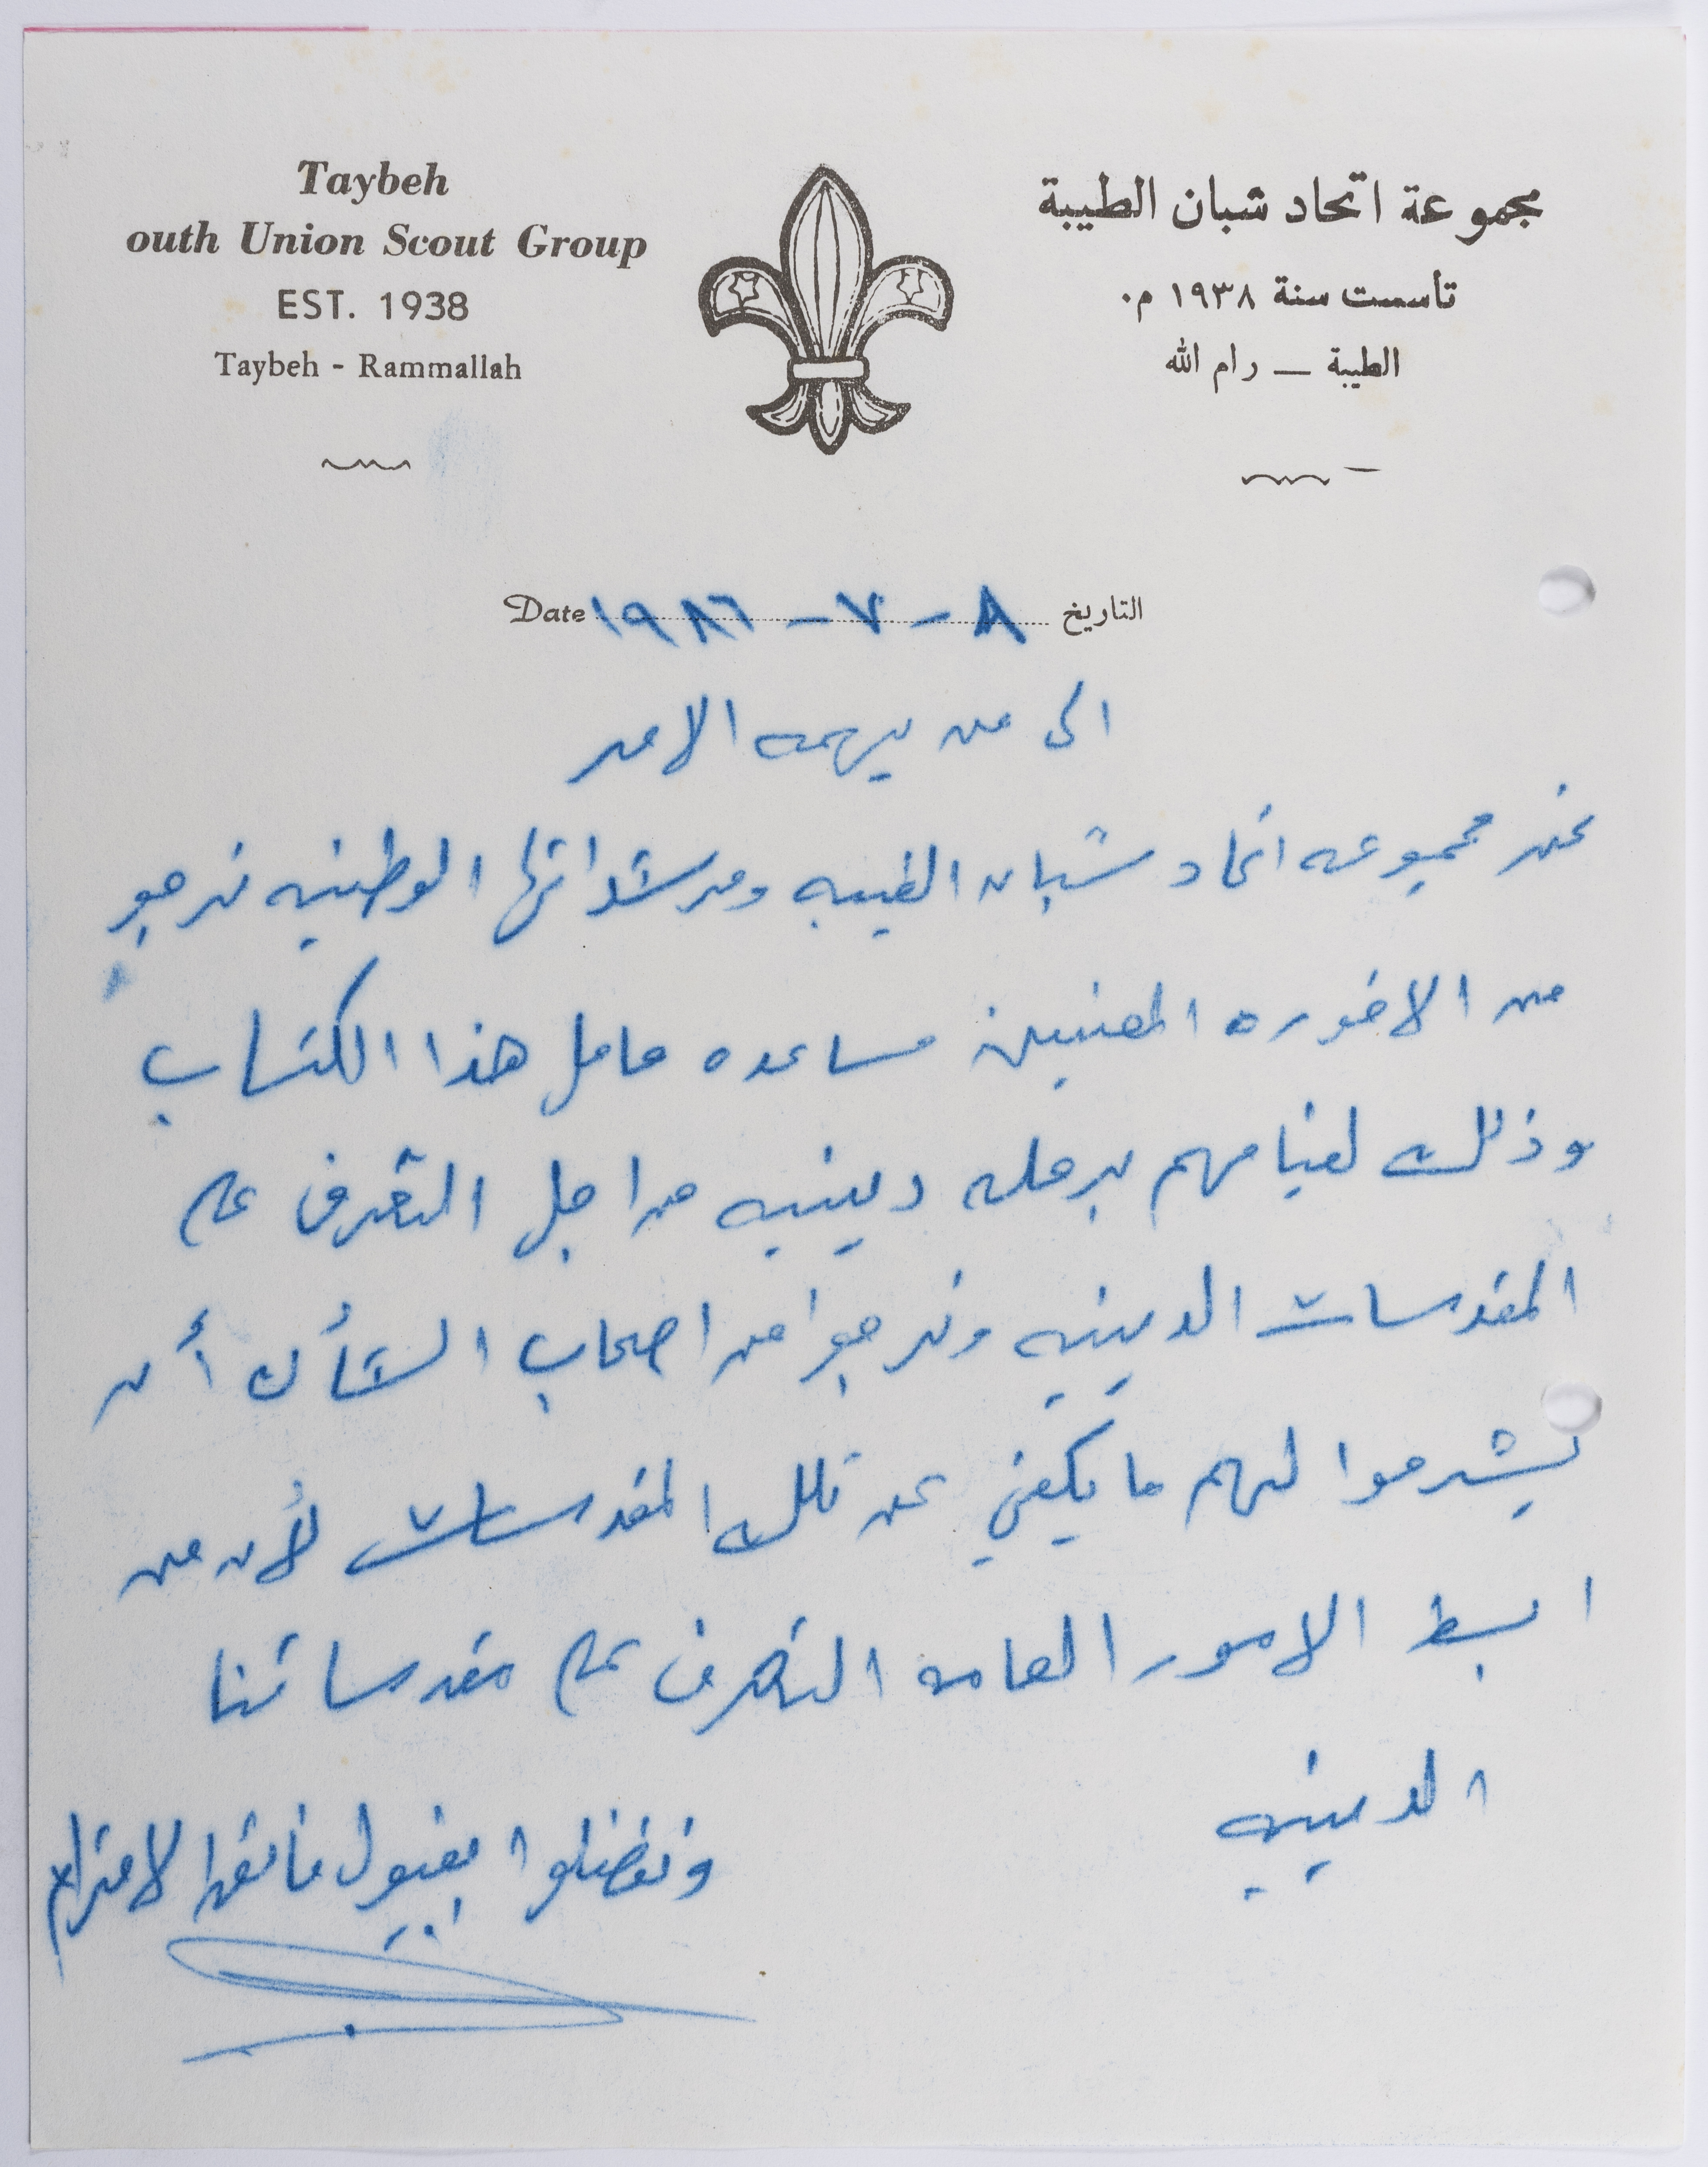 Taybeh
outh Union Scout Group
EST. 1938
Taybeh - Rammallah
مجموعة اتحاد شبان الطيبة
تأسست سنة ١٩٣٨ م.
الطيبة — رام الله
التاريخ ٨ - ٧ - ١٩٨٦ Date
الى من يهمه الامر
نحن مجموعه اتحاد شبان الطيبه ومرشداتها الوطنيه نرجو
من الاخوره المعنيين مساعده حامل هذا الكتاب
وذلك لقيامهم برحله دينيه من اجل التعرف على
المقدسات الدينيه ونرجوا من اصحاب الشأن أن
يشرحوا لهم ما يكفي عن تلك المقدسات لأن من
ابسط الامور العامه التعرف على مقدساتنا
الدينيه
وتفضلوا بقبول فائق الاحترام